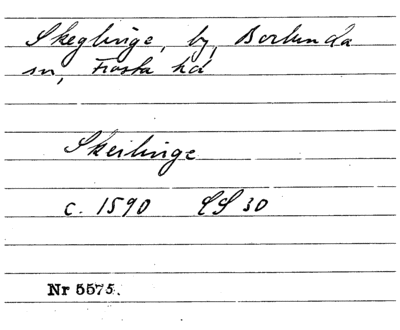 Skeglinge, by, Borlunda
sn, Frosta hd
Skeilinge
c. 1590 LS 30
Nr 5575.